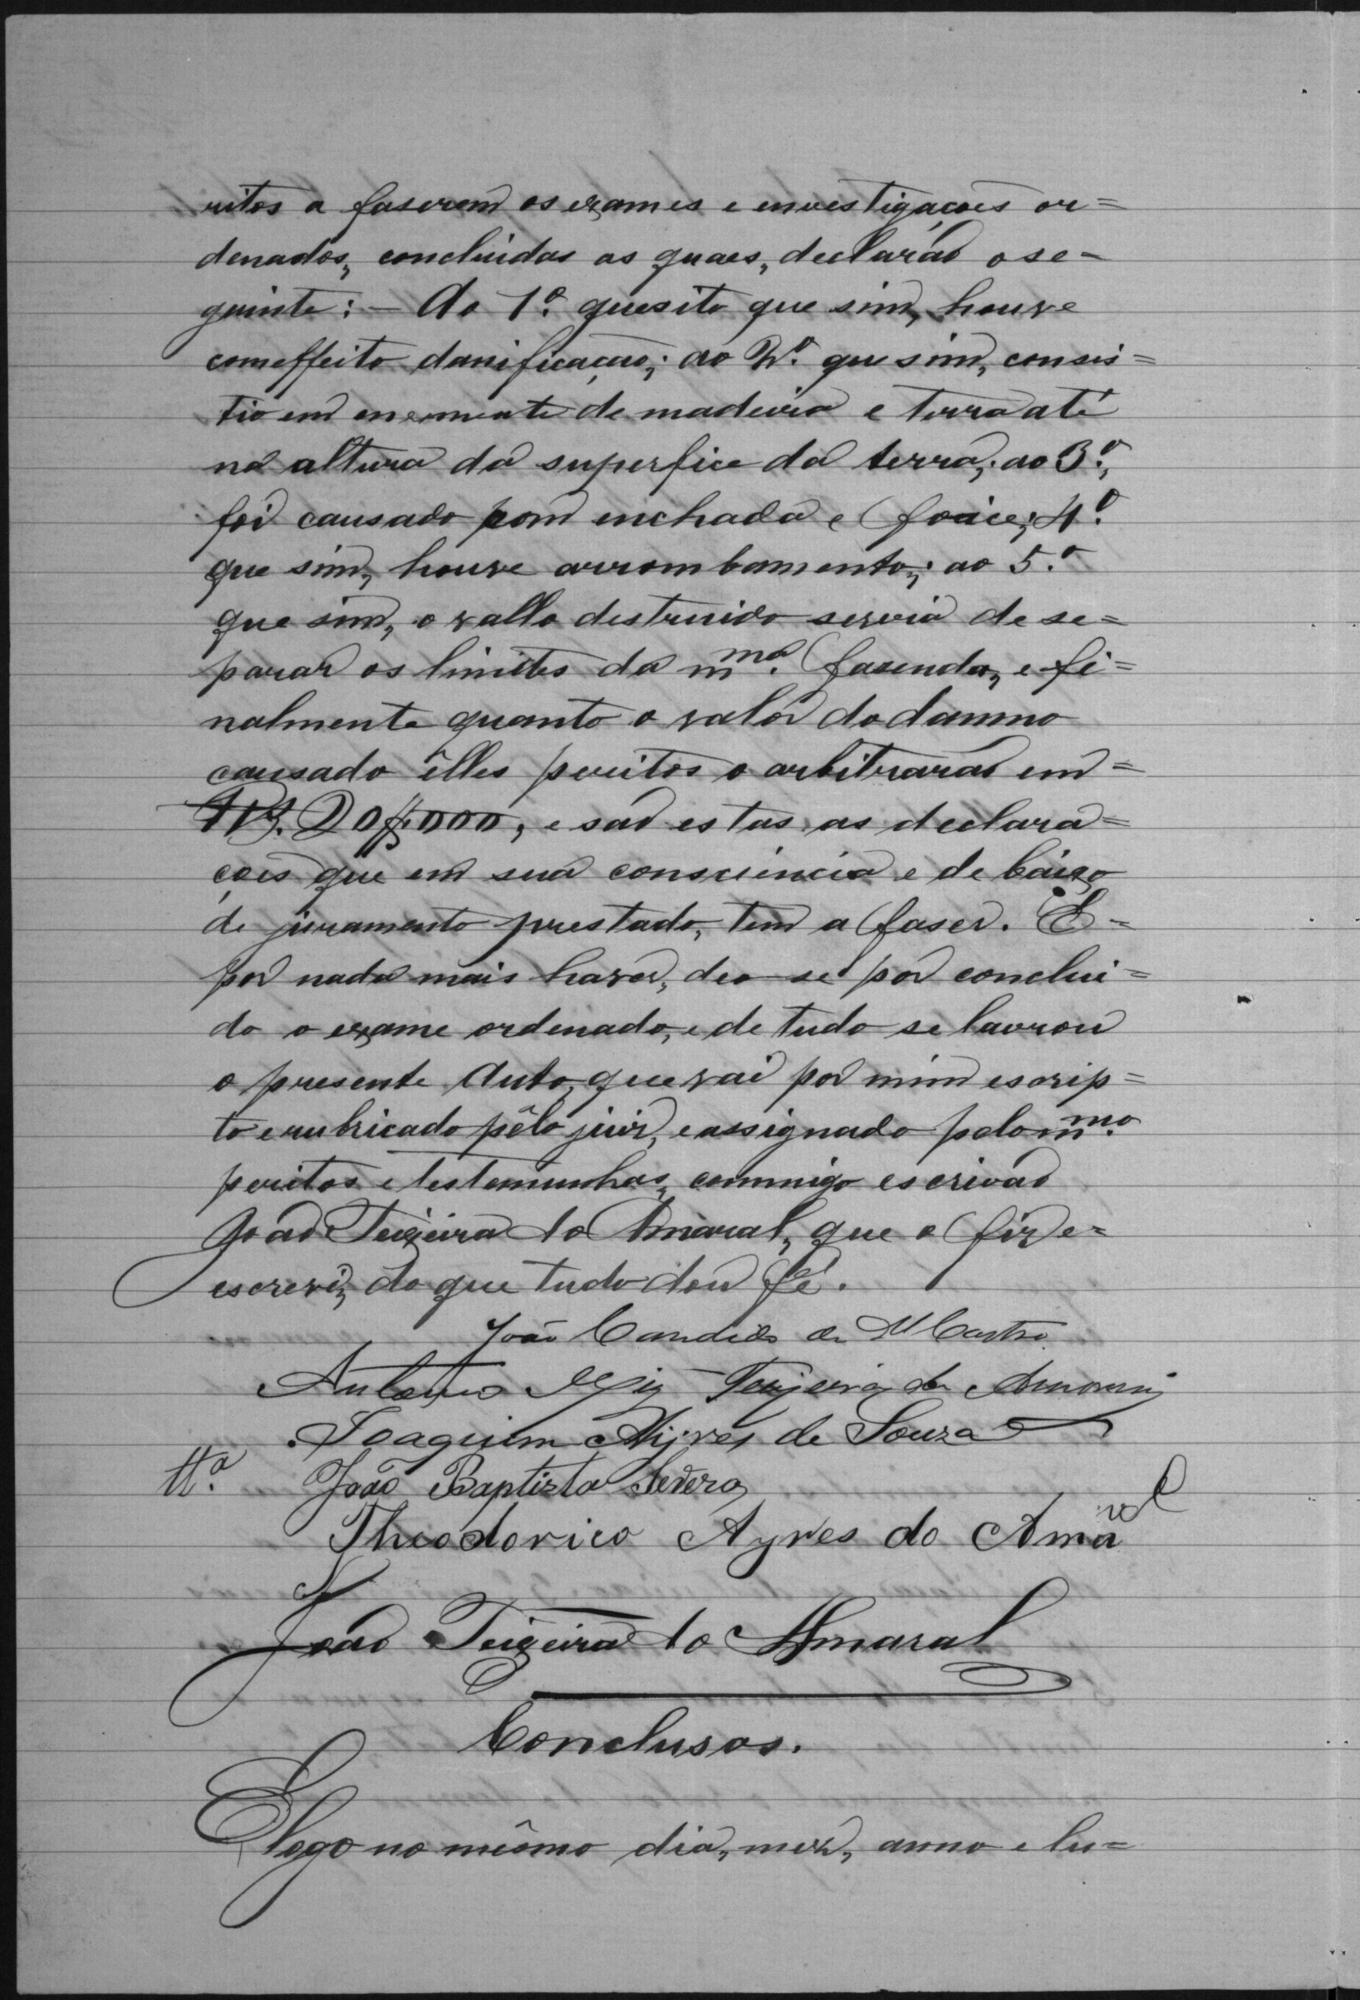 ritos a faserem os exames e envestigações or=
denados, concluidas as quaes, declarão o se=
guinte: — Ao 1º. quesito que sim, houve
comeffeito danificação; ao 2º. que sim, consis=
tio em de madeira e terra até
na altura da superfice da terra; ao 3º.,
foi causado com enchada e foice; 4º.
que sim, houve arrombamento; ao 5.º
que sim, o vallo destruido servia de se=
parar os limites da mma. fazenda, e fi=
nalmente quanto o valor do damno
causado êlles peritos o arbitrarão em=
Rs. 20$000, e são estas as declara=
ções que em sua consciencia e de baixo
de juramento prestado, tem a faser. E=
por nada mais haver, deo-se por conclui=
do o exame ordenado, e de tudo se lavrou
o presente Auto, que vai por mim escrip=
to e rubricado pêlo juiz, e assignado pelo mmo.
peritos e testemunhas, commigo escrivão
João Teixeira do Amaral, que o fiz e=
escrevi, do que tudo dou fé.
João Candido de M Castro
Antonio Teixeira de
Joaquim Ayres de Souza
ttª. João Baptista Severo
Theodorico Ayres do Amaral
João Teixeira do Amaral
Conclusos.
E logo no mêsmo dia, mez, anno e lu=